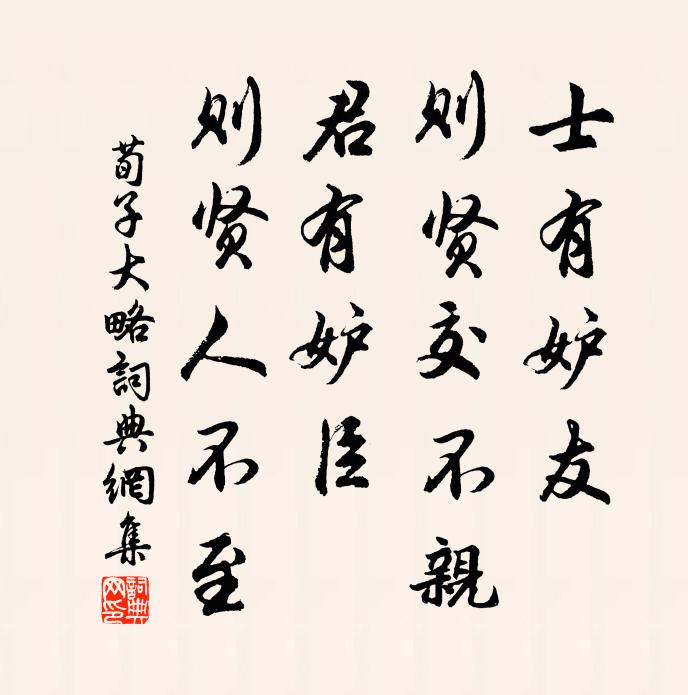 士有妒友
则贤交不親
君有妒臣
则贤人不至
荀子大略詞典網集
詞典网印